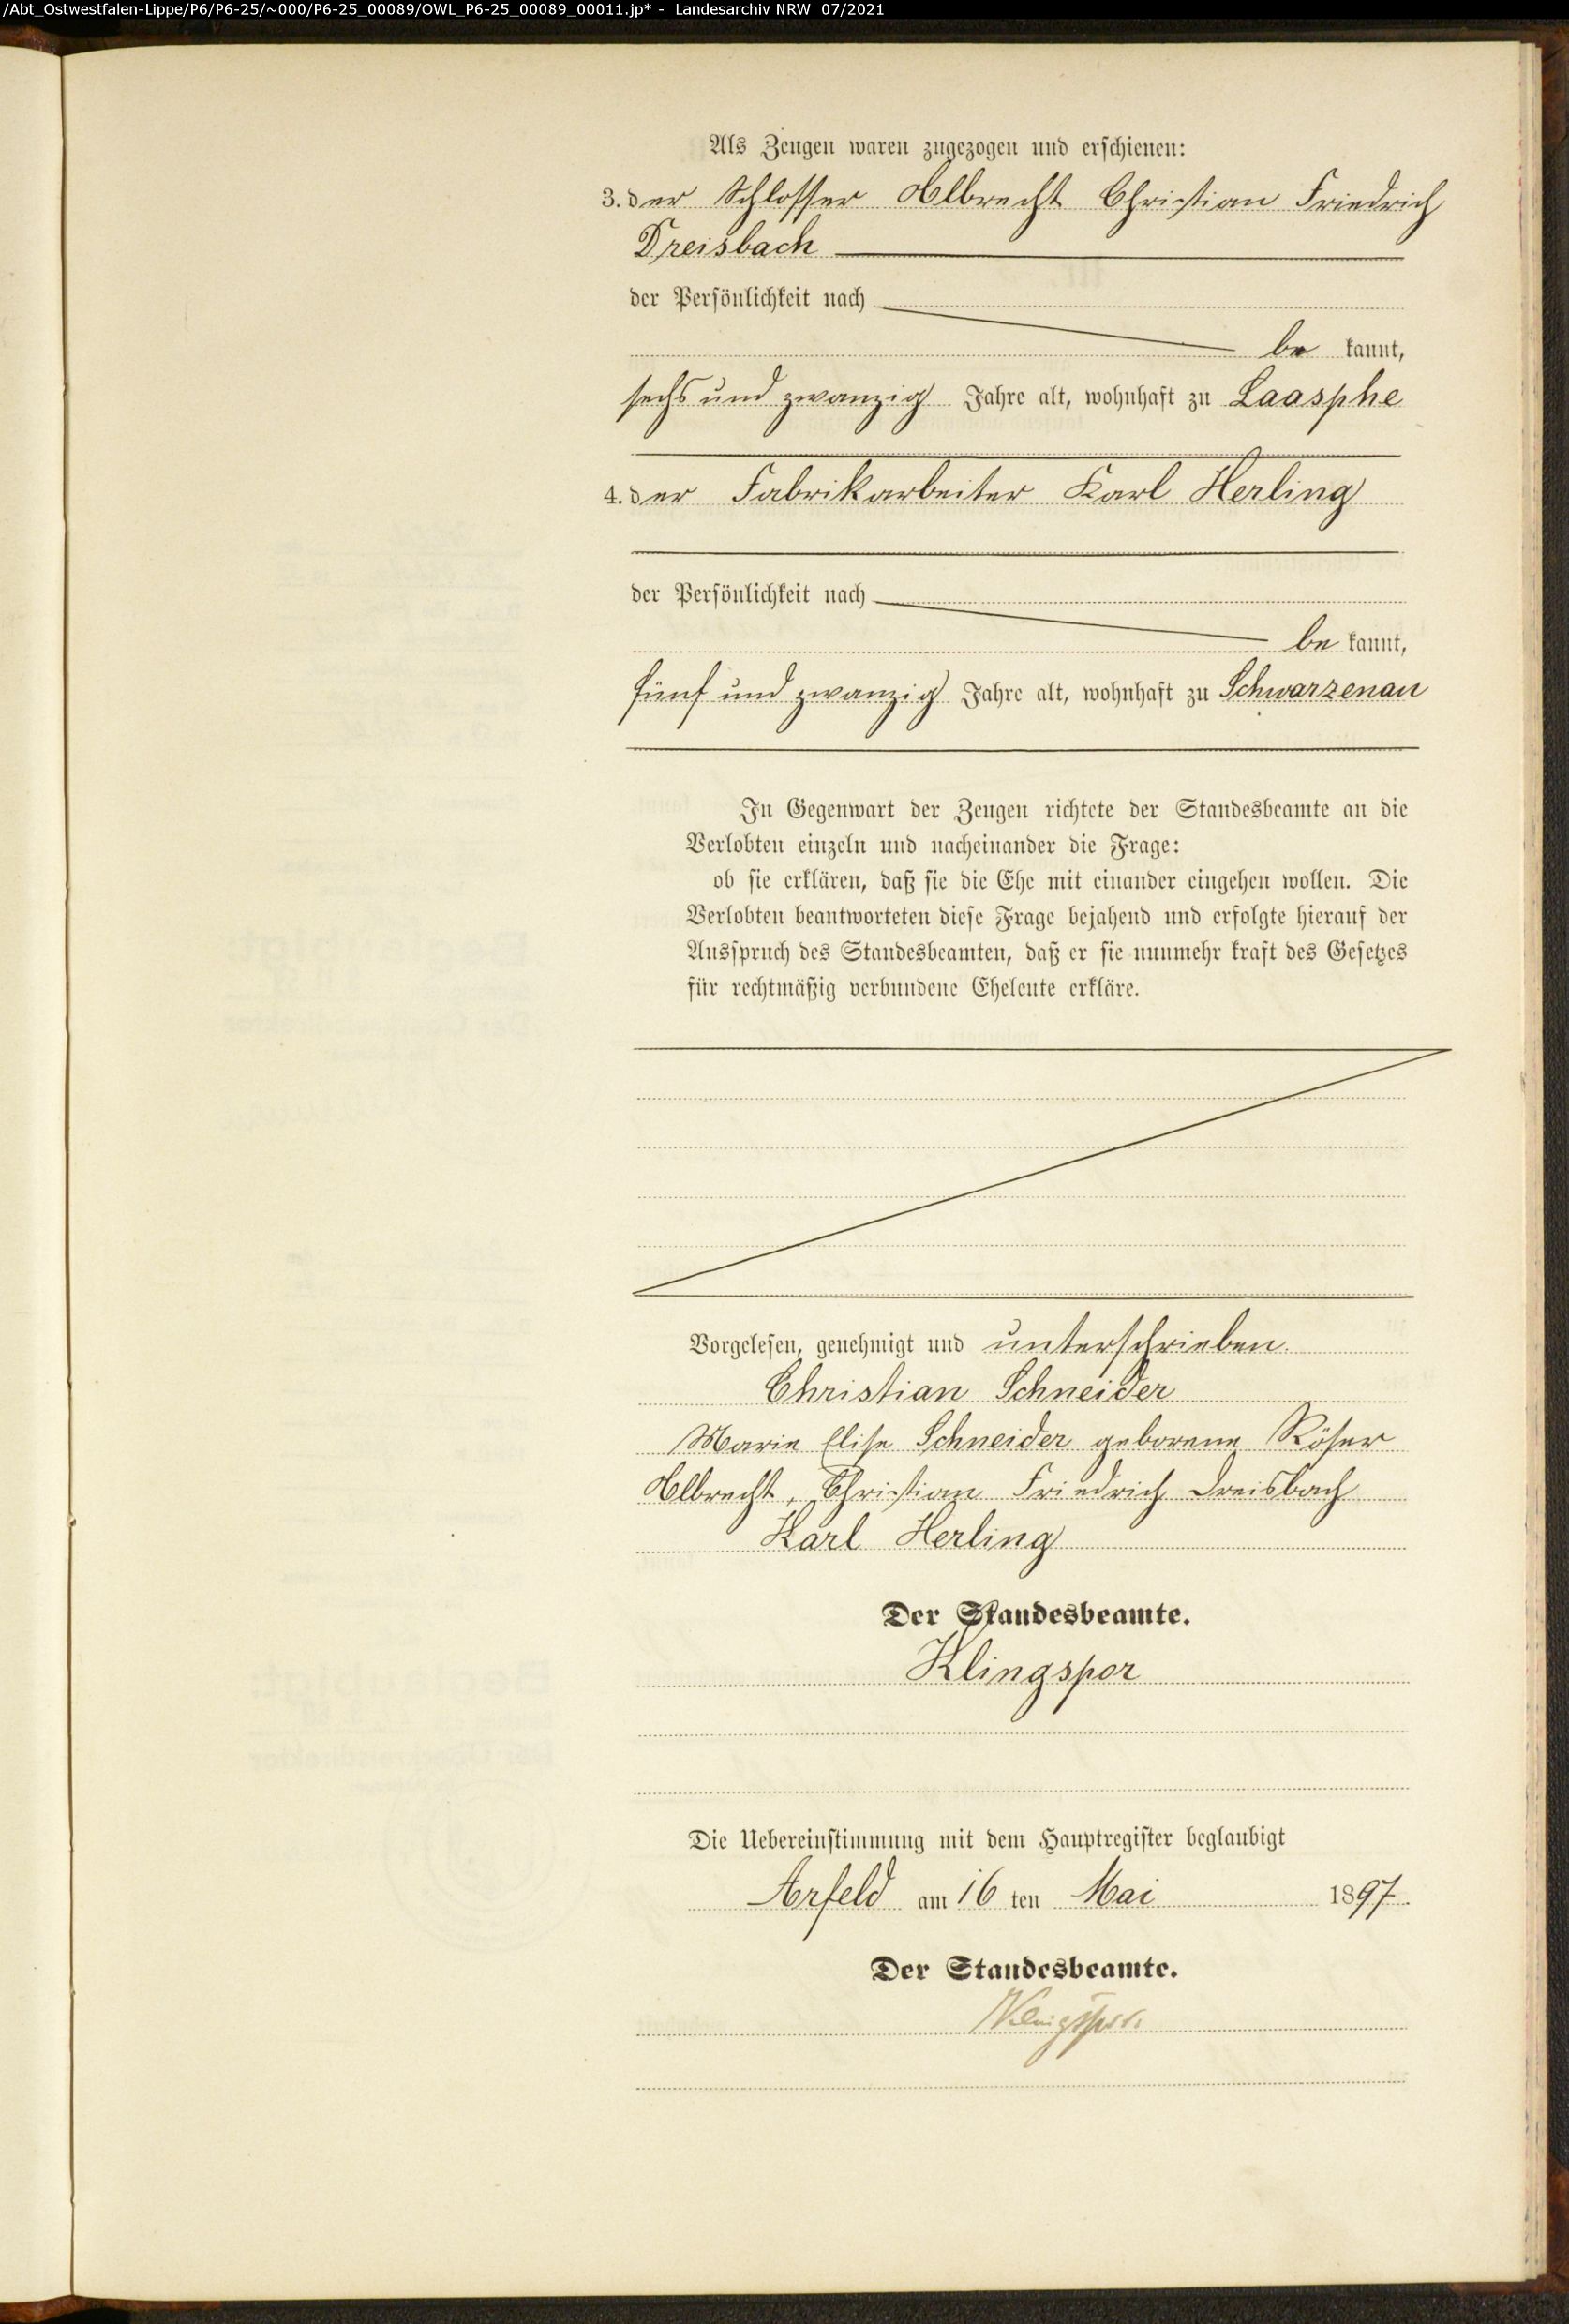 /Abt_Ostwestfalen-Lippe/P6/P6-25/~000/P6-25_00089/OWL_P6-25_00089_00011.jp* - Landesarchiv NRW 07/2021
Als Zeugen waren zugezogen und erschienen:
3. der Schlosser Albrecht Christian Friedrich
Dreisbach
der Persönlichkeit nach
be kannt,
sechs und zwanzig Jahre alt, wohnhaft zu Laasphe
4. der Fabrikarbeiter Karl Herling
der Persönlichkeit nach
be kannt,
fünf und zwanzig Jahre alt, wohnhaft zu Schwarzenau
In Gegenwart der Zeugen richtete der Standesbeamte an die
Verlobten einzeln und nacheinander die Frage:
ob sie erklären, daß sie die Ehe mit einander eingehen wollen. Die
Verlobten beantworteten diese Frage bejahend und erfolgte hierauf der
Ausspruch des Standesbeamten, daß er sie nunmehr kraft des Gesetzes
für rechtmäßig verbundene Eheleute erkläre.
Vorgelesen, genehmigt und unterschrieben.
Christian Schneider
Marie Elise Schneider geborene Röser
Albrecht, Christian Friedrich Dreisbach
Karl Herling
Der Standesbeamte.
Klingspor
Die Uebereinstimmung mit dem Hauptregister beglaubigt
Arfeld am 16 ten Mai 1897.
Der Standesbeamte.
Klingspor.